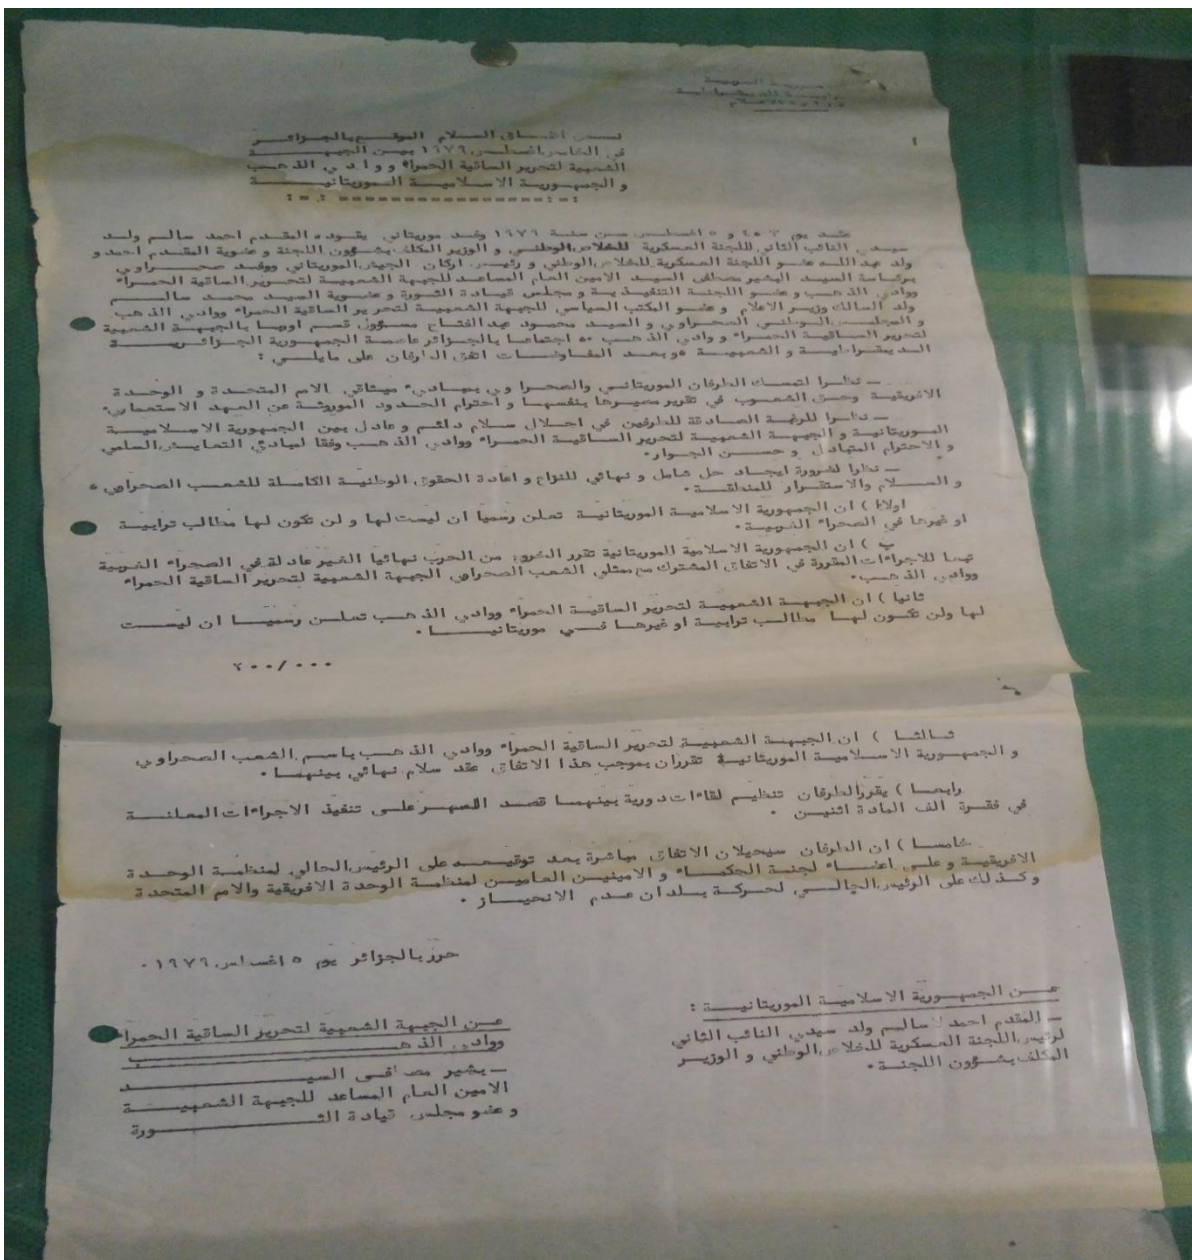 نص اتفاق السلام الموقع بالجزائر
في الخامس اغسطس ١٩٧٩ بين الجبهة
الشعبية لتحرير الساقية الحمراء ووادي الذهب
و الجمهورية الاسلامية الموريتانية
عقد يوم ٣ ٤ و ٥ اغسطس من سنة ١٩٧٩ وفد موريتاني يقوده المقدم احمد سالم ولد
سيدي النائب الثاني للجنة العسكرية للخلاص الوطني و الوزير المكلف بشؤون اللجنة و عضوية المقدم احمدو
ولد عبد الله عضو اللجنة العسكرية للخلاص الوطني و رئيس اركان الجيش الموريتاني ووفد صحراوي
برئاسة السيد البشير مصطفى السيد الامين العام المساعد للجبهة الشعبية لتحرير الساقية الحمراء
ووادي الذهب و عضو اللجنة التنفيذية و مجلس قيادة الثورة و عضوية السيد محمد سالم
ولد السالك وزير الاعلام و عضو المكتب السياسي للجبهة الشعبية لتحرير الساقية الحمراء ووادي الذهب
و المجلس الوطني الصحراوي و السيد محمود عبد الفتاح مسؤول قسم اوربا بالجبهة الشعبية
لتحرير الساقية الحمراء و وادي الذهب ٥٠ اجتماعا بالجزائر عاصمة الجمهورية الجزائرية
الديمقراطية و الشعبية ٥ و بعد المفاوضات اتفق الطرفان على مايلي :
ـ نظرا لتمسك الطرفان الموريتاني والصحراوي بمبادىء ميثاقي الامم المتحدة و الوحدة
الافريقية وحق الشعوب في تقرير مصيرها بنفسها و احترام الحدود الموروثة عن العهد الاستعماري٠
ـ نظرا للرغبة الصادقة للطرفين في احلال سلام دائم و عادل بين الجمهورية الاسلامية
الموريتانية و الجبهة الشعبية لتحرير الساقية الحمراء ووادي الذهب وفقا لمبادئ التعايش السلمي
و الاحترام المتبادل و حسن الجوار٠
ـ نظرا لضرورة ايجاد حل شامل و نهائي للنزاع و اعادة الحقوق الوطنية الكاملة للشعب الصحراوي ٥
و السلام والاستقرار للمنطقة٠
اولا ا ) ان الجمهورية الاسلامية الموريتانية تعلن رسميا ان ليست لها و لن تكون لها مطالب ترابية
او غيرها في الصحراء الغربية٠
ب ) ان الجمهورية الاسلامية الموريتانية تقرر الخروج من الحرب نهائيا الغير عادلة في الصحراء الغربية
تبعا للاجراءات المقررة في الاتفاق المشترك مع ممثلي الشعب الصحراوي الجبهة الشعبية لتحرير الساقية الحمراء
ووادي الذهب٠
ثانيا ) ان الجبهة الشعبية لتحرير الساقية الحمراء ووادي الذهب تعلن رسميا ان ليست
لها ولن تكون لها مطالب ترابية او غيرها في موريتانيا ٠
٢٠٠/٠٠٠
ثالثا ) ان الجبهة الشعبية لتحرير الساقية الحمراء ووادي الذهب باسم الشعب الصحراوي
و الجمهورية الاسلامية الموريتانية تقرران بموجب هذا الاتفاق عقد سلام نهائي بينهما ٠
رابعا ) يقرر الطرفان تنظيم لقاءات دورية بينهما قصد السهر على تنفيذ الاجراءات المعلنة
في فقرة الف المادة اثنين ٠
خامسا ) ان الطرفان سيحيلان الاتفاق مباشرة بعد توقيعه على الرئيس الحالي لمنظمة الوحدة
الافريقية و على اعضاء لجنة الحكماء و الامينين العامين لمنظمة الوحدة الافريقية والامم المتحدة
و كذلك على الرئيس الحالي لحركة بلدان عدم الانحياز ٠
حرر بالجزائر يوم ٥ اغسطس ١٩٧٩ ٠
عن الجمهورية الاسلامية الموريتانية :
ـ المقدم احمد سالم ولد سيدي النائب الثاني
لرئيس اللجنة العسكرية للخلاص الوطني و الوزير
المكلف بشؤون اللجنة ٠
عن الجبهة الشعبية لتحرير الساقية الحمراء
ووادي الذهب
ـ بشير مصطفى السيد
الامين العام المساعد للجبهة الشعبية
و عضو مجلس قيادة الثورة